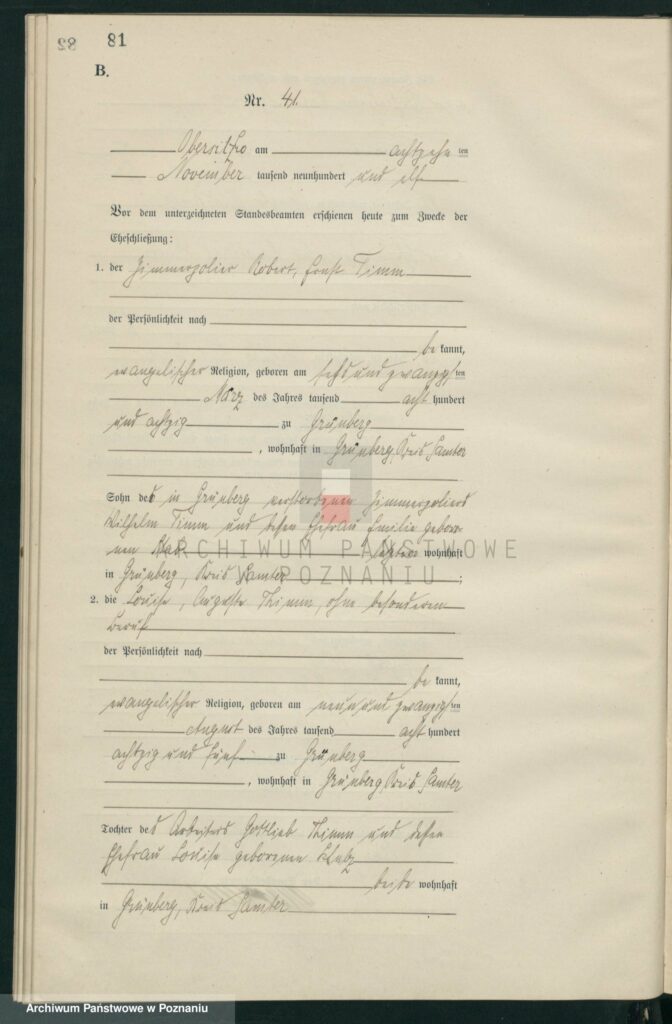 82 81
B.
Nr. 41.
Obersitzko am achtzehnten
November tausend neunhundert und elf
Vor dem unterzeichneten Standesbeamten erschienen heute zum Zwecke der
Eheschließung:
1. der Zimmerpolier Robert, Ernst Timm
der Persönlichkeit nach
be kannt,
evangelischer Religion, geboren am sechsundzwanzigsten
März des Jahres tausend acht hundert
und achtzig zu Grünberg
, wohnhaft in Grünberg, Kreis Samter
Sohn des in Grünberg verstorbenen Zimmerpoliers
Wilhelm Timm und dessen Ehefrau Emilie gebore-
nen letztere wohnhaft
in Grünberg, Kreis Samter ;
2. die Louise, Auguste Thimm, ohne besonderen
Beruf
der Persönlichkeit nach
be kannt,
evangelischer Religion, geboren am neunundzwanzigsten
August des Jahres tausend acht hundert
achtzig und fünf zu Grünberg
, wohnhaft in Grünberg, Kreis Samter
Tochter des Arbeiters Gottlieb Thimm und dessen
Ehefrau Louise geborenen
beide wohnhaft
in Grünberg, Kreis Samter
ARCHIWUM PAŃSTWOWE
W POZNANIU
Archiwum Państwowe w Poznaniu